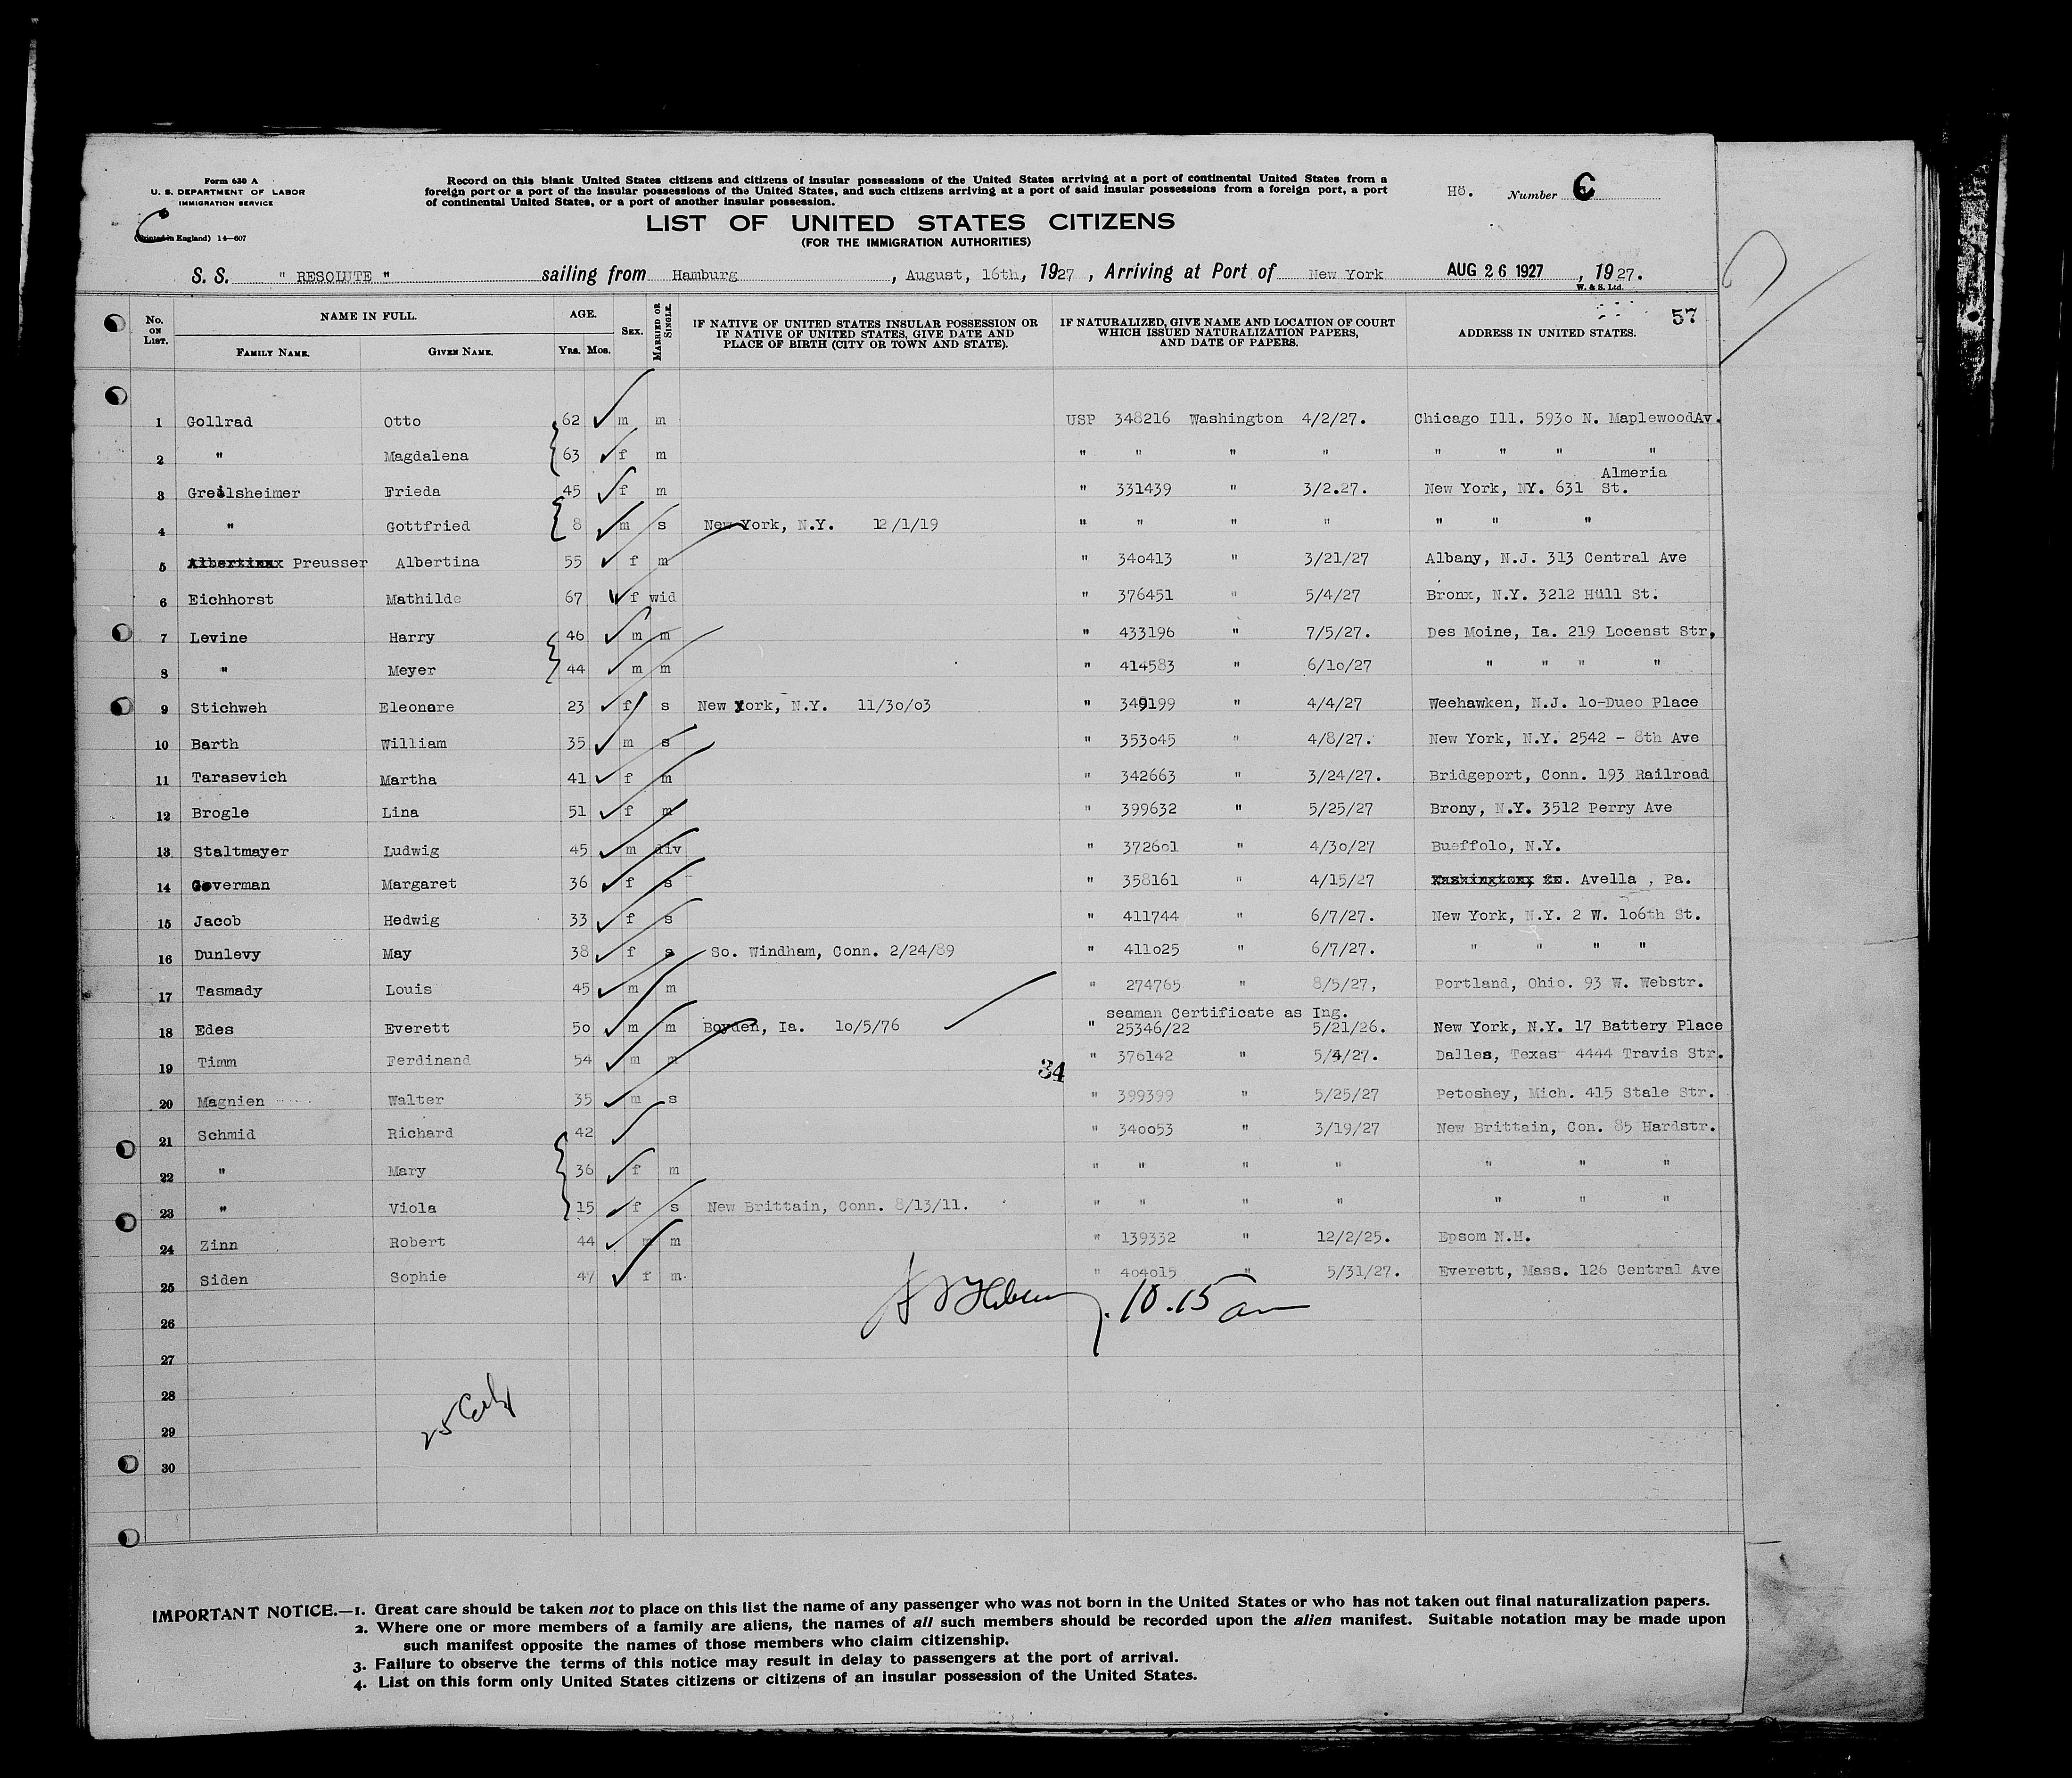 Form 630 A
U. S. DEPARTMENT OF LABOR
IMMIGRATION SERVICE
(Printed in England) 14—607
Record on this blank United States citizens and citizens of insular possessions of the United States arriving at a port of continental United States from a
foreign port or a port of the insular possessions of the United States, and such citizens arriving at a port of said insular possessions from a foreign port, a port
of continental United States, or a port of another insular possession.
Hö. Number C
LIST OF UNITED STATES CITIZENS
(FOR THE IMMIGRATION AUTHORITIES)
S. S. " RESOLUTE " sailing from Hamburg , August, 16th, 1927 , Arriving at Port of New York AUG 26 1927 , 1927.
W. & S. Ltd.
57
No. ON LIST. NAME IN FULL. AGE. SEX. MARRIED OR SINGLE. IF NATIVE OF UNITED STATES INSULAR POSSESSION OR IF NATIVE OF UNITED STATES, GIVE DATE AND PLACE OF BIRTH (CITY OR TOWN AND STATE). IF NATURALIZED, GIVE NAME AND LOCATION OF COURT WHICH ISSUED NATURALIZATION PAPERS, AND DATE OF PAPERS. ADDRESS IN UNITED STATES.
FAMILY NAME. GIVEN NAME. YRS. MOS.
1 Gollrad Otto 62 m m USP 348216 Washington 4/2/27. Chicago Ill. 5930 N. MaplewoodAv.
2 " Magdalena 63 f m " " " " " " " "
Almeria
3 Greilsheimer Frieda 45 f m " 331439 " 3/2.27. New York, NY. 631 St.
4 " Gottfried 8 m s New York, N.Y. 12/1/19 " " " " " " "
5 Preusser Albertina 55 f m " 340413 " 3/21/27 Albany, N.J. 313 Central Ave
6 Eichhorst Mathilde 67 f wid " 376451 " 5/4/27 Bronx, N.Y. 3212 Hüll St.
7 Levine Harry 46 m m " 433196 " 7/5/27. Des Moine, Ia. 219 Locenst Str,
8 " Meyer 44 m m " 414583 " 6/10/27 " " " "
9 Stichweh Eleonore 23 f s New York, N.Y. 11/30/03 " 349199 " 4/4/27 Weehawken, N.J. 10-Dueo Place
10 Barth William 35 m s " 353045 " 4/8/27. New York, N.Y. 2542 - 8th Ave
11 Tarasevich Martha 41 f m " 342663 " 3/24/27. Bridgeport, Conn. 193 Railroad
12 Brogle Lina 51 f m " 399632 " 5/25/27 Brony, N.Y. 3512 Perry Ave
13 Staltmayer Ludwig 45 m div " 372601 " 4/30/27 Bueffolo, N.Y.
14 Goverman Margaret 36 f s " 358161 " 4/15/27 Avella , Pa.
15 Jacob Hedwig 33 f s " 411744 " 6/7/27. New York, N.Y. 2 W. 106th St.
16 Dunlevy May 38 f s So. Windham, Conn. 2/24/89 " 411025 " 6/7/27. " " " "
17 Tasmady Louis 45 m m " 274765 " 8/5/27, Portland, Ohio. 93 W. Webstr.
seaman Certificate as Ing.
18 Edes Everett 50 m m Boyden, Ia. 10/5/76 " 25346/22 5/21/26. New York, N.Y. 17 Battery Place
19 Timm Ferdinand 54 m m " 376142 " 5/4/27. Dalles, Texas 4444 Travis Str.
34
20 Magnien Walter 35 m s " 399399 " 5/25/27 Petoshey, Mich. 415 Stale Str.
21 Schmid Richard 42 " 340053 " 3/19/27 New Brittain, Con. 85 Hardstr.
22 " Mary 36 f m " " " " " " "
23 " Viola 15 f s New Brittain, Conn. 8/13/11. " " " " " " "
24 Zinn Robert 44 m m " 139332 " 12/2/25. Epsom N.H.
25 Siden Sophie 47 f m. " 404015 " 5/31/27. Everett, Mass. 126 Central Ave
10.15 am
26
27
28
29
30
25
IMPORTANT NOTICE.—1. Great care should be taken not to place on this list the name of any passenger who was not born in the United States or who has not taken out final naturalization papers.
2. Where one or more members of a family are aliens, the names of all such members should be recorded upon the alien manifest. Suitable notation may be made upon
such manifest opposite the names of those members who claim citizenship.
3. Failure to observe the terms of this notice may result in delay to passengers at the port of arrival.
4. List on this form only United States citizens or citizens of an insular possession of the United States.